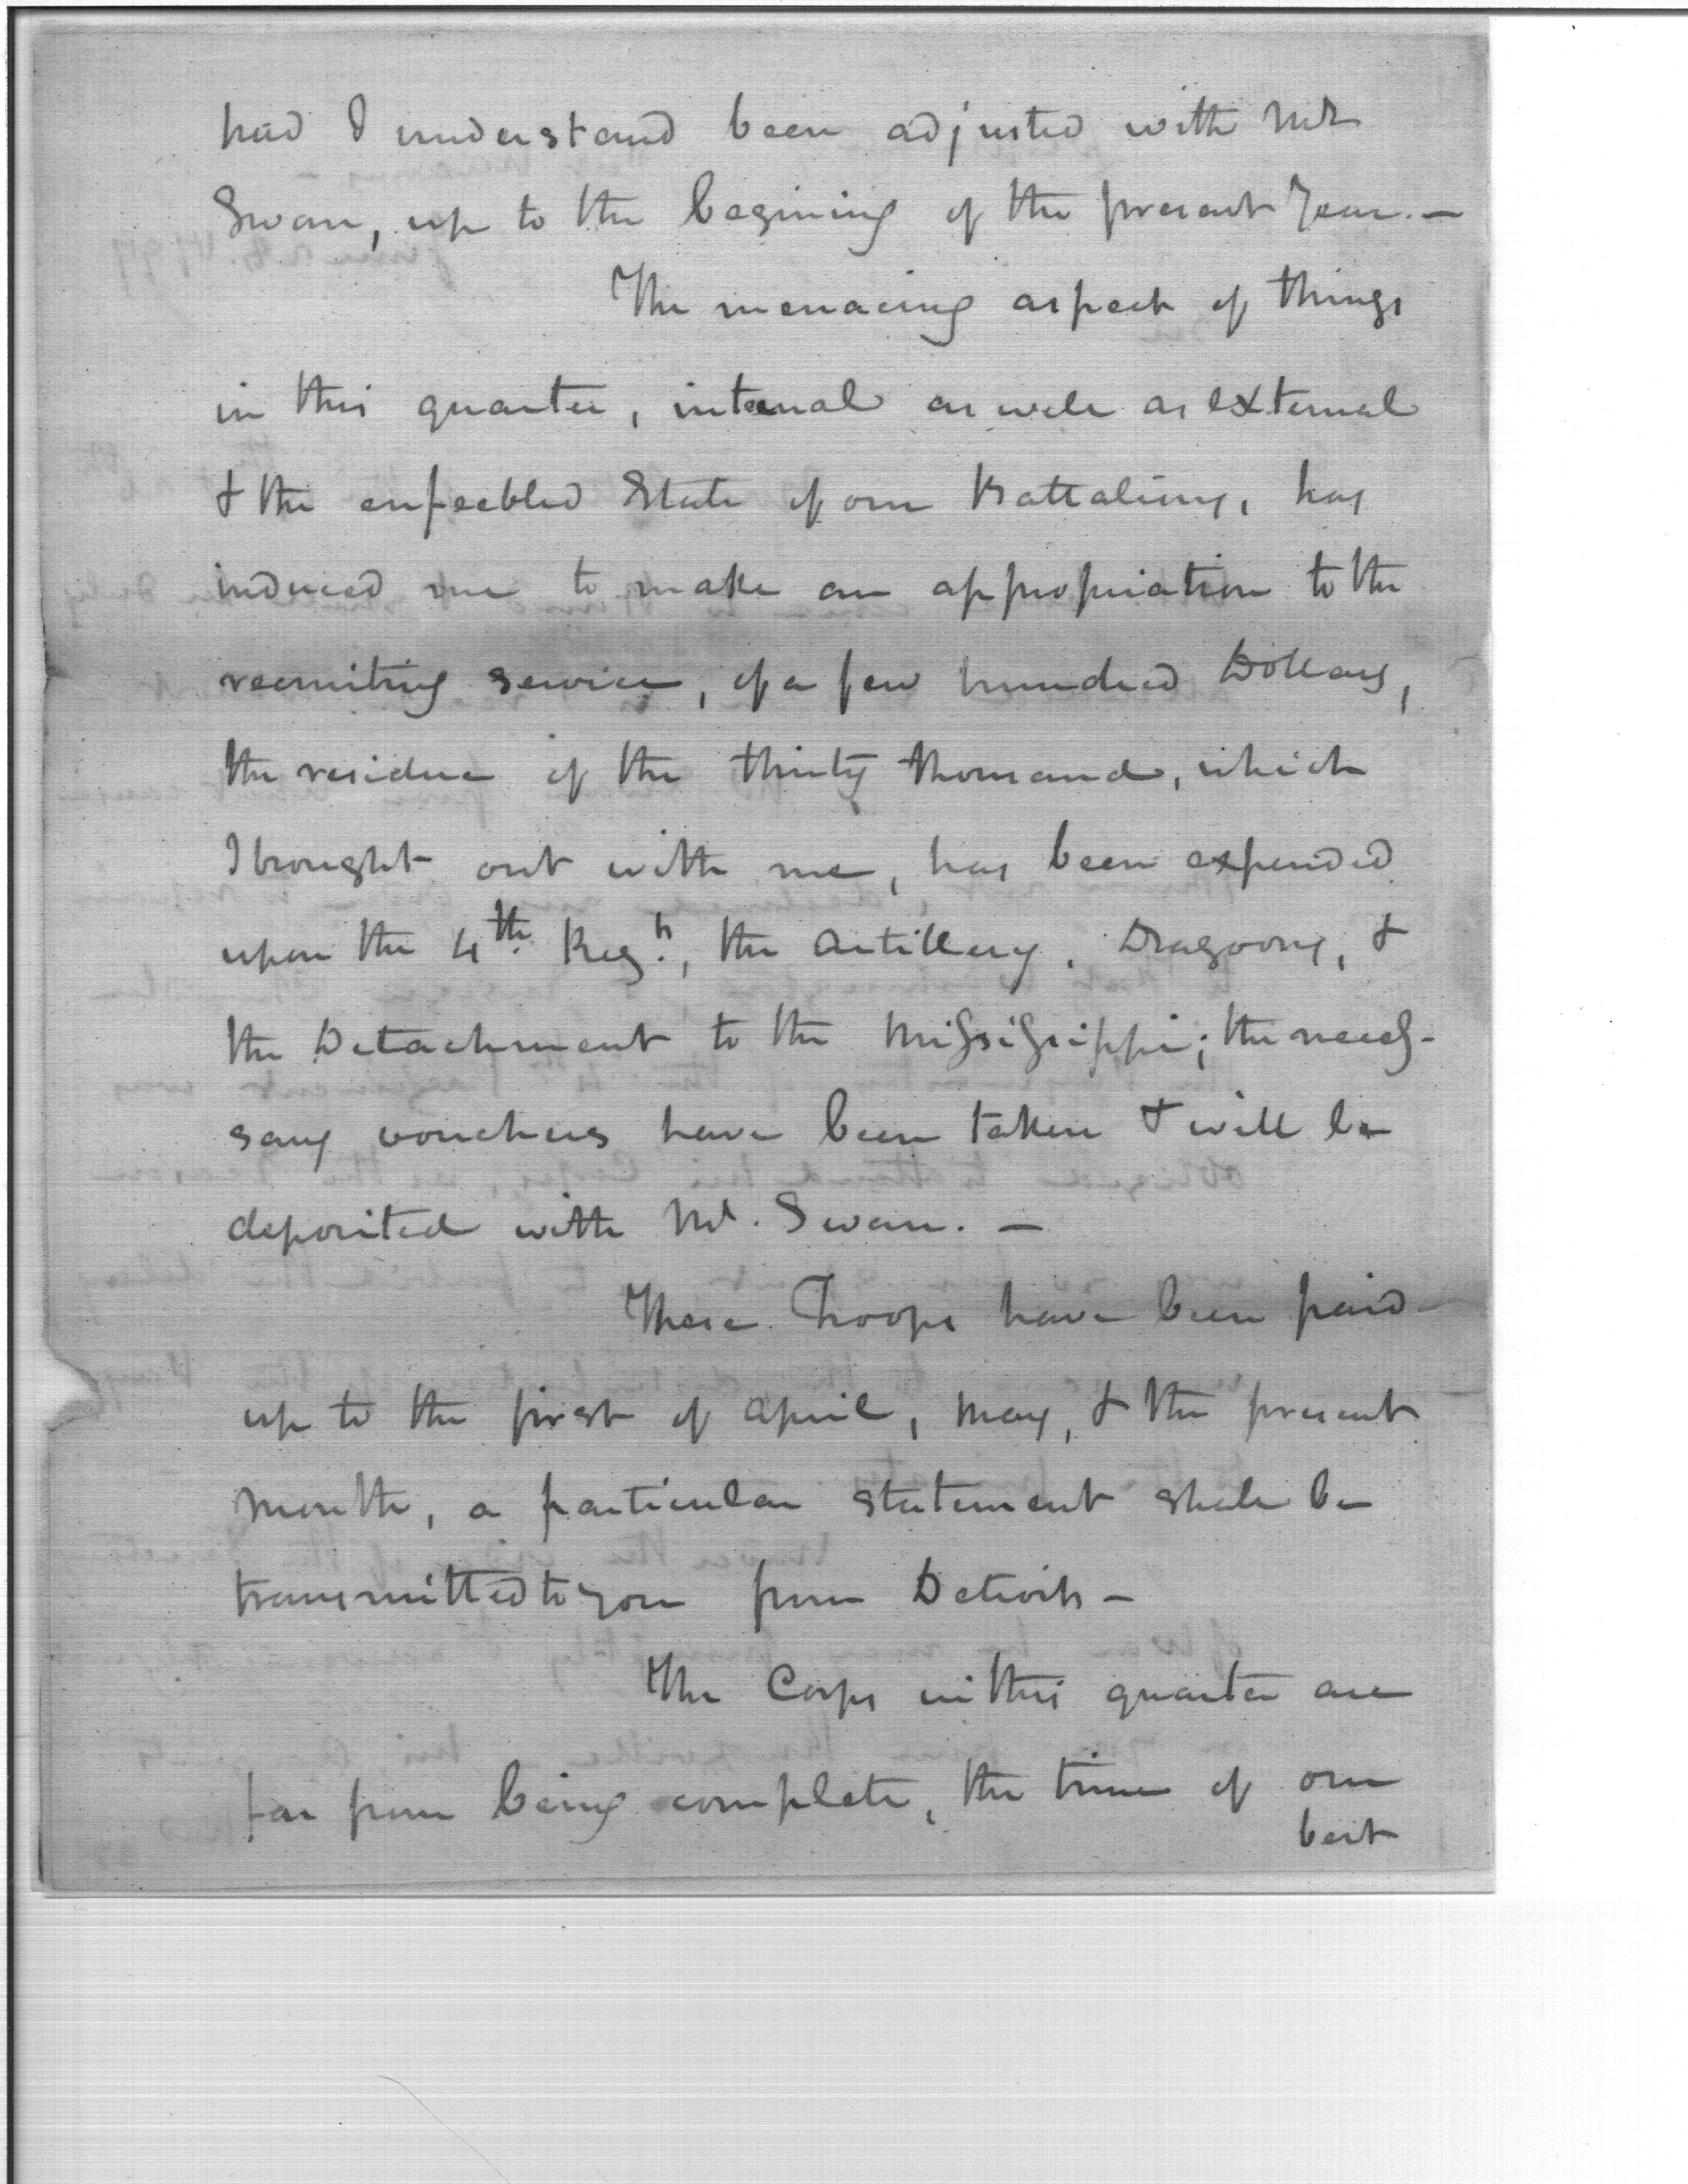 had I understand been adjusted with Mr
Swan, up to the begining of the present Year. —
The menacing aspect of things
in this quarter, internal as well as external
& the enfeebled State of our Battalions, has
induced me to make an appropriation to the
recruiting service, of a few hundred Dollars,
the residue of the thirty thousand, which
I brought out with me, has been expended
upon the 4th Regt, the Artillery, Dragoons, &
the Detachment to the Mississippi; the neces-
sary vouchers have been taken & will be
deposited with Mr. Swan. —
These Troops have been paid
up to the first of April, May, & the present
Month, a particular statement shall be
transmitted to you from Detroit —
The Corps in this quarter are
far from being complete, the time of our
best